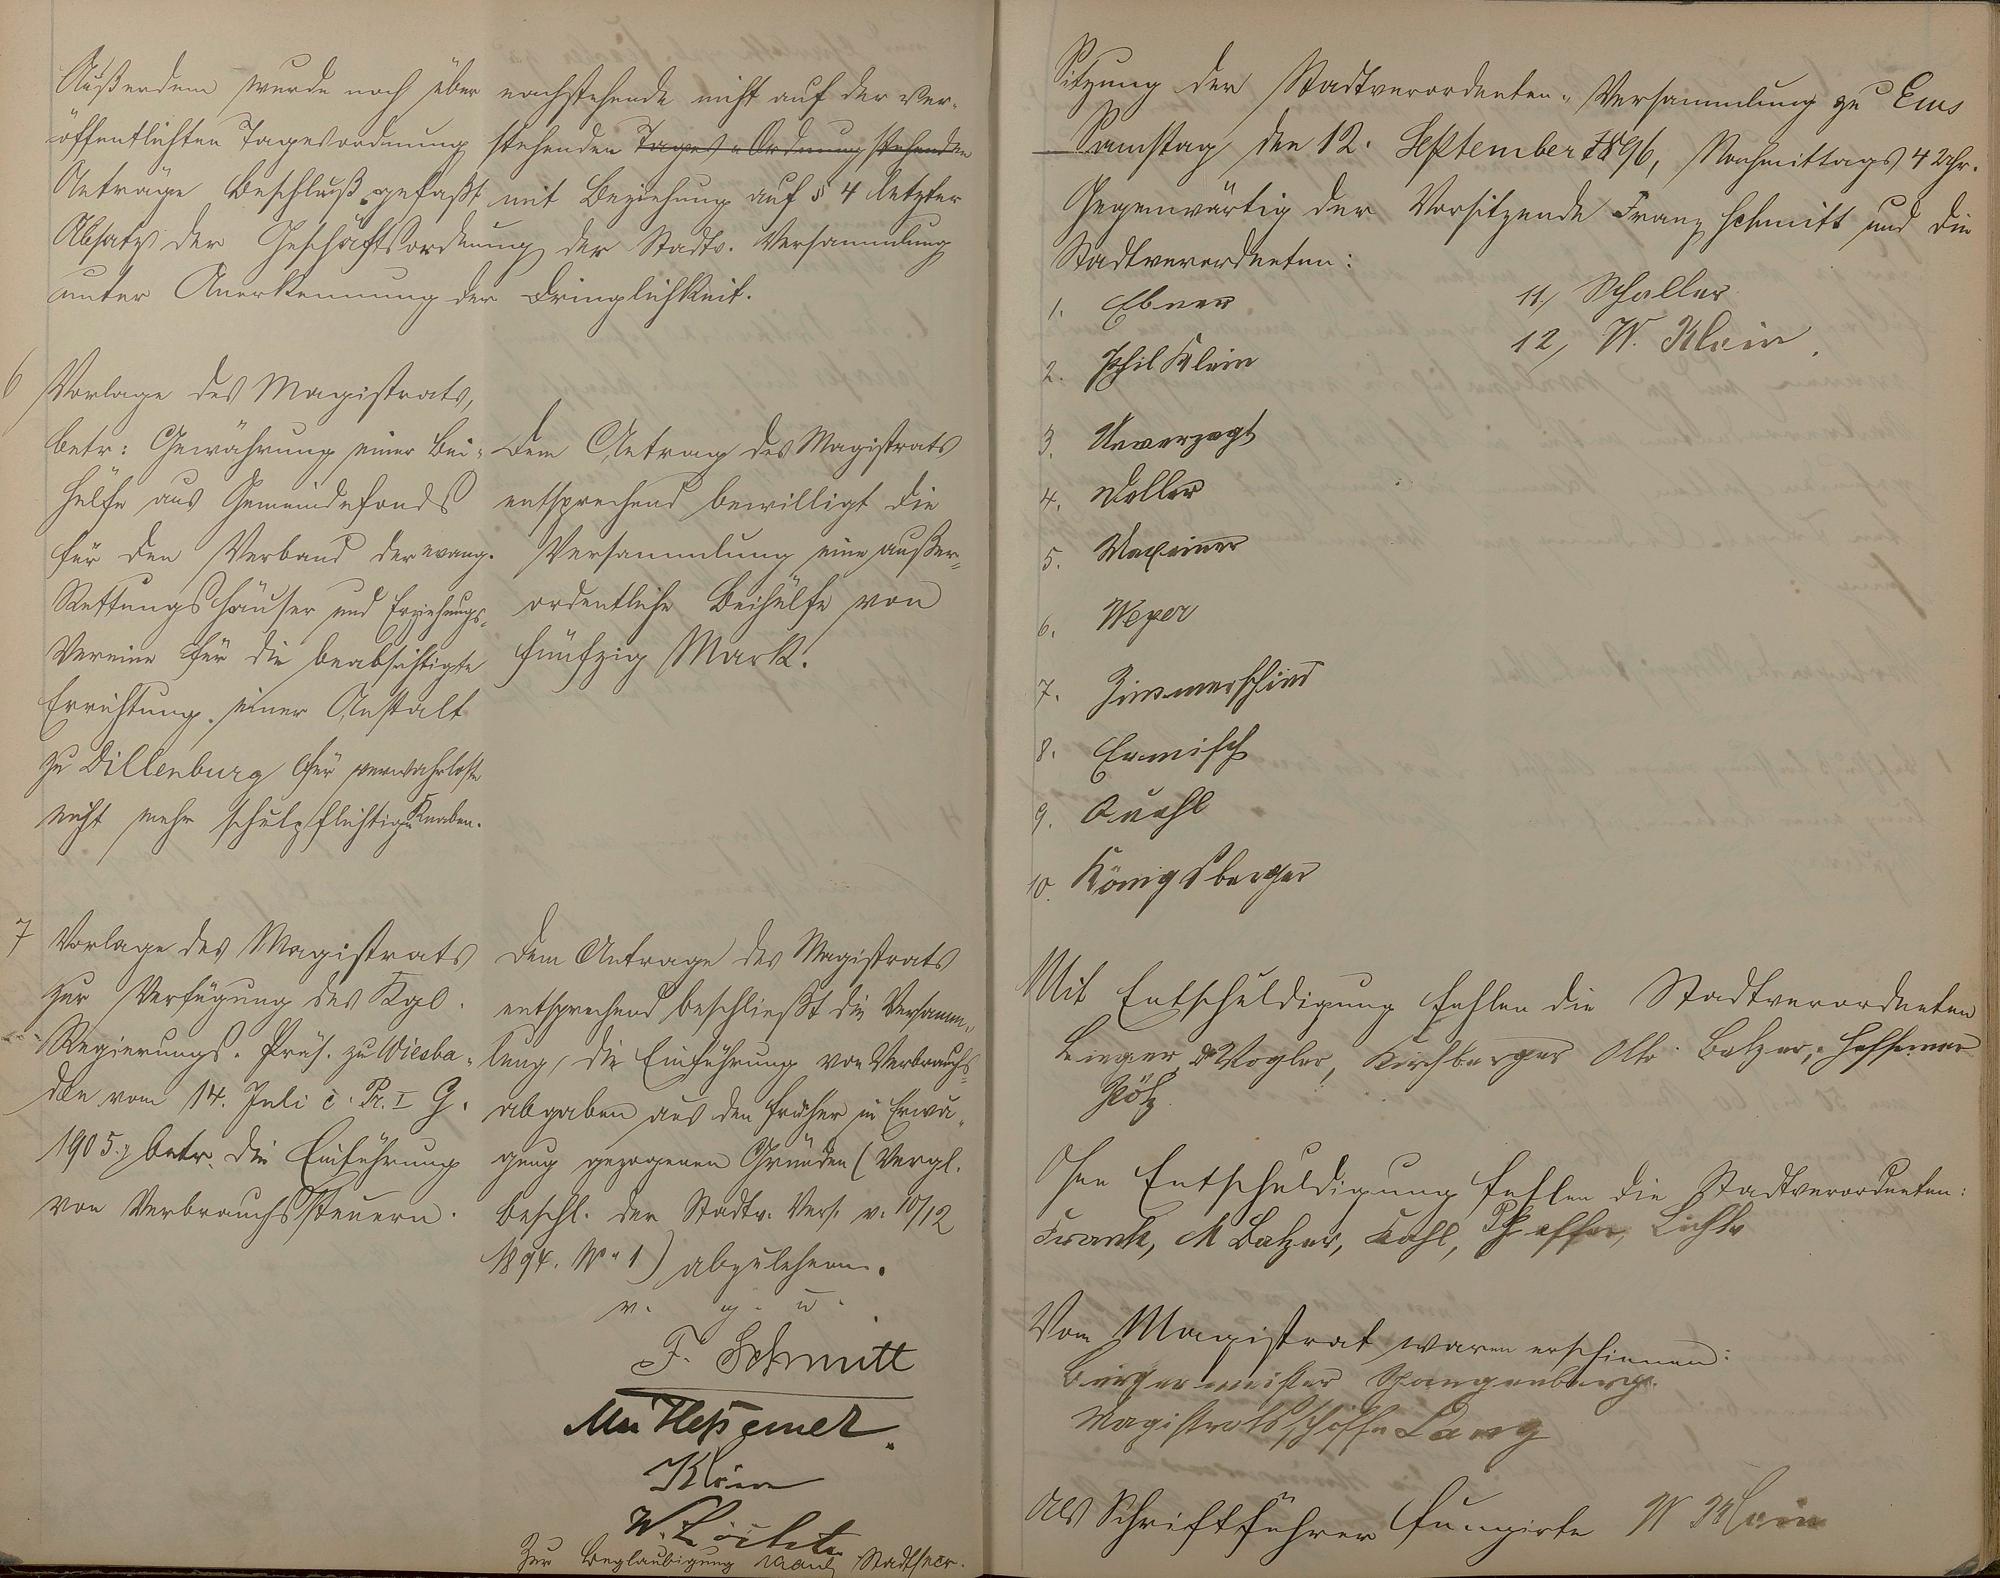 Außerdem wurde noch über nachstehende nicht auf der ver-
öffentlichten Tagesordnung stehenden Tages-Ordnung stehenden
Anträge Beschluß gefaßt mit Beziehung auf § 4 letzter
Absatz der Geschäftsordnung der Stadtv. Versammlung
unter Anerkennung der Dringlichkeit.
6 Vorlage des Magistrats,
betr: Gewährung einer Bei-
hülfe aus Gemeindefonds
für den Verband der evang.
Rettungshäuser und Erziehungs-
Vereine für die beabsichtigte
Errichtung einer Anstalt
zu Dillenburg für verwahrloste
nicht mehr schulpflichtige Knaben.
Dem Antrag des Magistrats
entsprechend bewilligt die
Versammlung eine außer-
ordentliche Beihülfe von
fünfzig Mark.
7 Vorlage des Magistrats
zur Verfügung des Kgl.
Regierungs-Präs. zu Wiesba-
den vom 14. Juli c. Pr. I G.
1905, betr. die Einführung
von Verbrauchssteuern.
Dem Antrage des Magistrats
entsprechend beschließt die Versamm-
lung, die Einführung von Verbrauchs-
abgaben aus den früher in Erwä-
gung gezogenen Gründen (Vergl.
Beschl. der Stadtv. Vers. v. 10/12
1894. No 1) abzulehnen.
v. g. u.
F. Schmitt
Heßemer
Klein
W.
Zur Beglaubigung Stadtsecr.
Sitzung der Stadtverordneten-Versammlung zu Ems
Samstag den 12. September 1896, Nachmittags 4 Uhr.
Gegenwärtig der Vorsitzende Franz Schmitt und die
Stadtverordneten:
1. Ebner
2. Phil Klein
3. Unverzagt
4. Doller
5. Maxeiner
6. Weyer
7. Zimmerschied
8. Ermisch
9. Quehl
10. Königsberger
11, Schaller
12, W. Klein
Mit Entschuldigung fehlen die Stadtverordneten
Linger, Dr Vogler, Kirchberger Otto Balzer, Hessemer
Götz
Ohne Entschuldigung fehlen die Stadtverordneten:
Frank, M Balzer, Kohl, Pfeffer, Lichte
Vom Magistrat waren erschienen:
Bürgermeister Spangenberg.
Magistratsschöffe Lang
Als Schriftführer fungirte W Klein